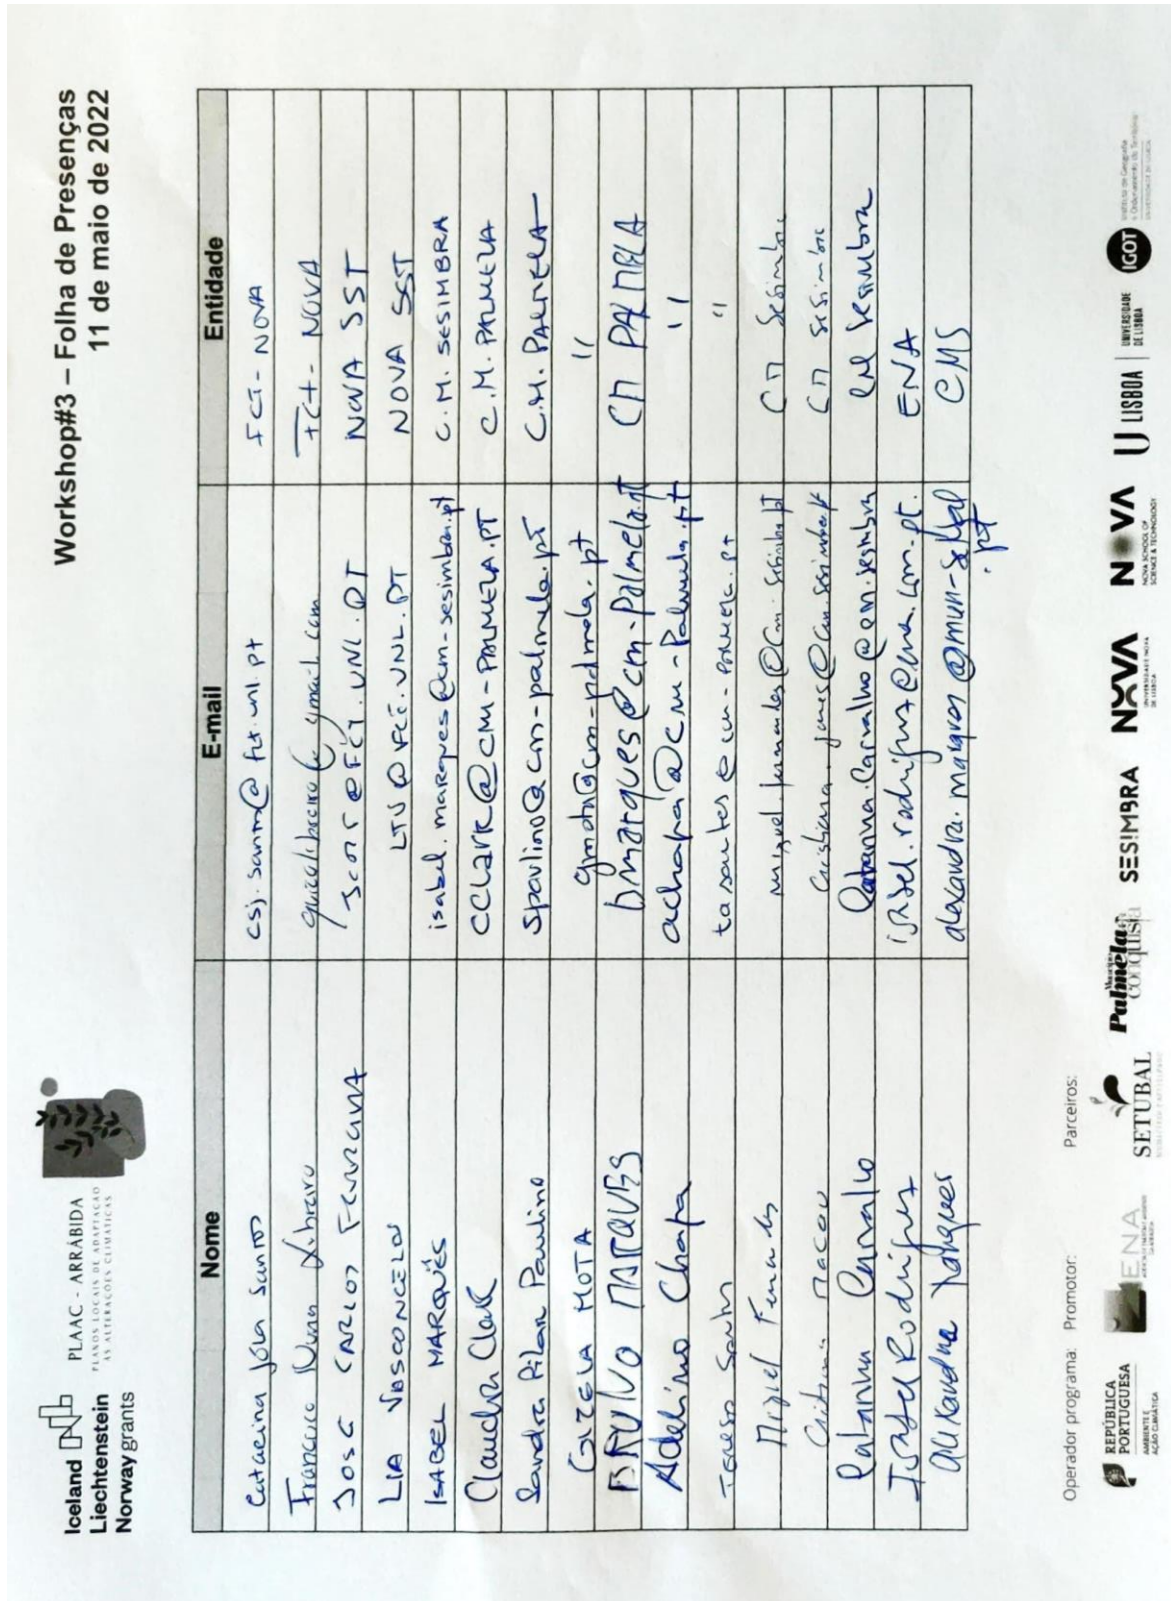 Iceland
Liechtenstein
Norway grants
PLAAC - ARRÁBIDA
PLANOS LOCAIS DE ADAPTAÇÃO
ÀS ALTERAÇÕES CLIMÁTICAS
Workshop#3 – Folha de Presenças
11 de maio de 2022
Nome E-mail Entidade
Catarina Jóia Santos csj.santos@fct.unl.pt FCT - NOVA
Francisco Nuno Libreiro @gmail.com FCT - NOVA
JOSÉ CARLOS FERREIRA jcrf@FCT.UNL.PT NOVA SST
LIA VASCONCELOS LTV@FCT.UNL.PT NOVA SST
ISABEL MARQUÊS isabel.marques@cm-sesimbra.pt C.M. SESIMBRA
Claudia Clark CCLARK@CM-PALMELA.PT C.M. PALMELA
Sandra Pilar Paulino Spaulino@cm-palmela.pt C.M. PALMELA
GIZELA MOTA gmota@cm-palmela.pt "
BRUNO MARQUES bmarques@cm-palmela.pt CM PALMELA
Adelino Chapa achapa@cm-palmela.pt "
Teresa Santos tasantos@cm-palmela.pt "
Miguel Fernandes miguel.fernandes@cm-sesimbra.pt CM Sesimbra
Cristina CM Sesimbra
Carvalho CM Sesimbra
Isabel Rodrigues isabel.rodrigues@ena.com.pt. ENA
Alexandra CMS
Operador programa: Promotor: Parceiros:
REPÚBLICA
PORTUGUESA
AMBIENTE E
AÇÃO CLIMÁTICA
ENA
SETUBAL
Palmela
conquista
SESIMBRA
NOVA
NOVA
NOVA SCHOOL OF
SCIENCE & TECHNOLOGY
U LISBOA
UNIVERSIDADE
DE LISBOA
IGOT
Instituto de Geografia
e Ordenamento do Território
UNIVERSIDADE DE LISBOA